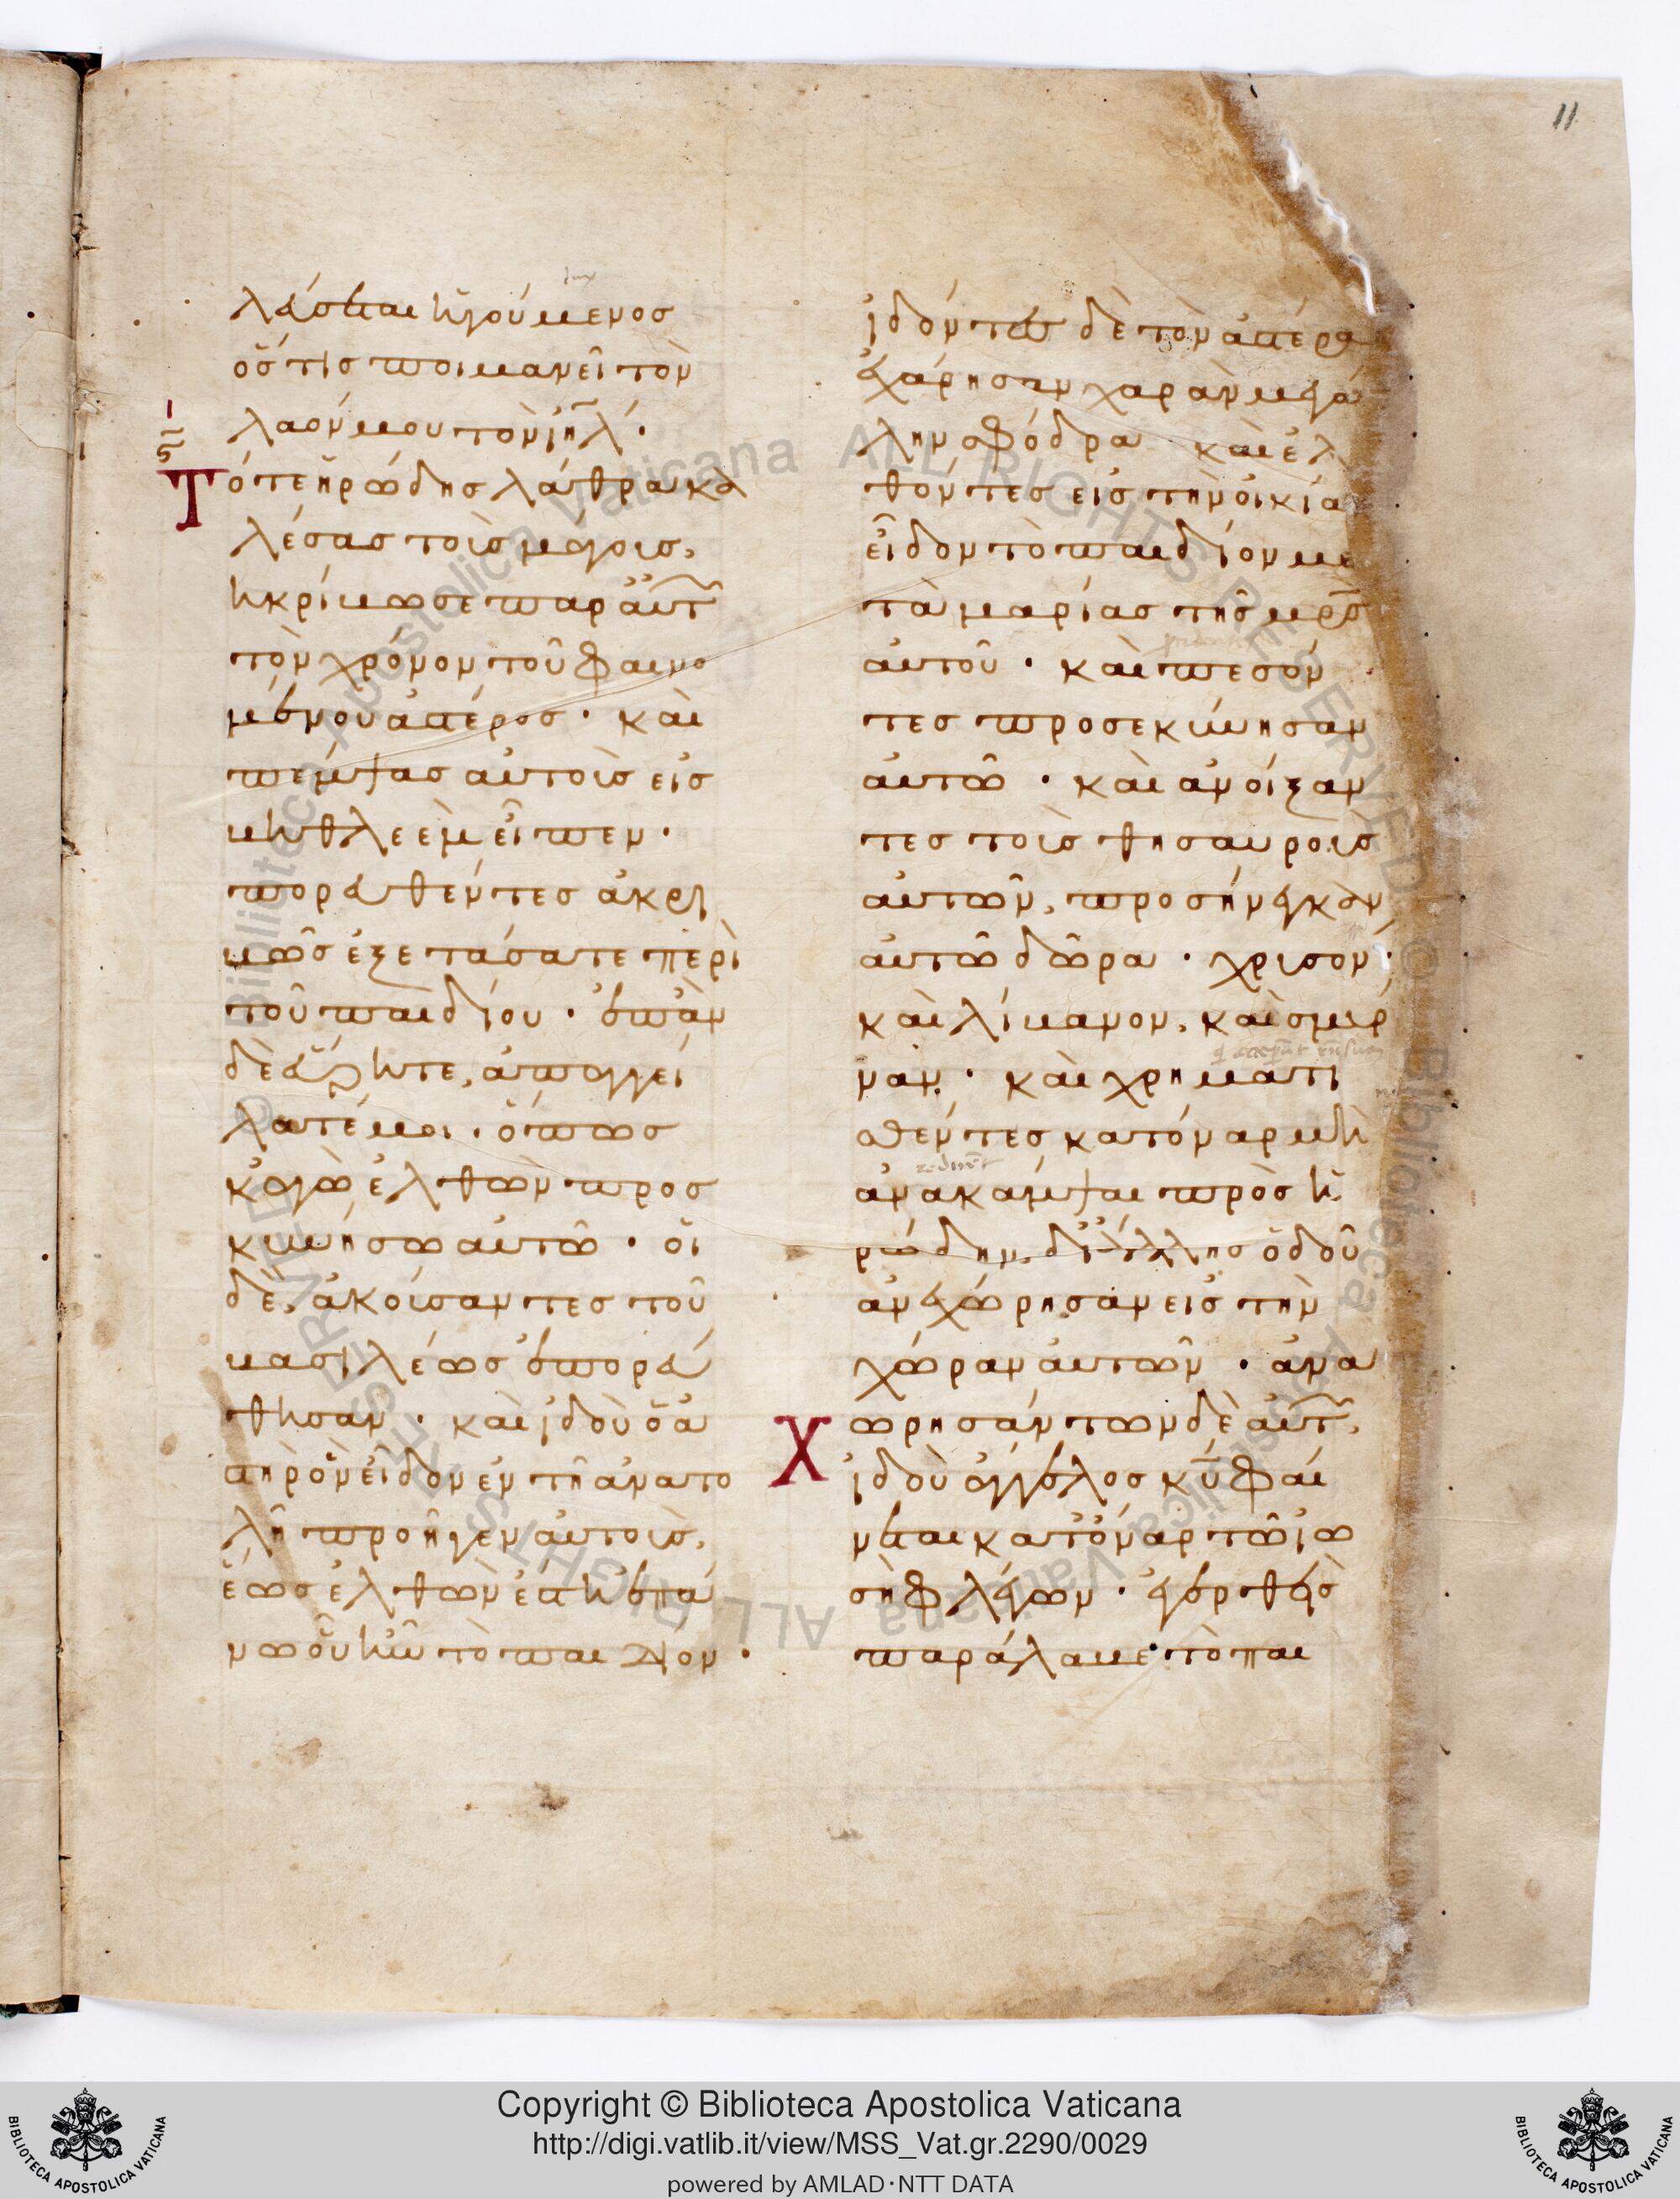 11
λεύσεται ἡγούμενοσ
ὅστισ ποιμανεῖ τὸν
λαόν μου τὸν ιηλ ·
Τότε ἡρώδησ λάθρα κα
λέσασ τοὺσ μάγουσ,
ἠκρίβωσε παρ αὐτ
τὸν χρόνον τοῦ φαινο
μένου ἀστέροσ · καὶ
πέμψασ αὐτοὺσ εἰσ
βηθλεὲμ εἶπεν ·
πορευθέντεσ ἀκρι
βῶσ ἐξετάσατε περὶ
τοῦ παιδίου · ἐπὰν
δὲ εὕρητε, ἀπαγγεί
λατέ μοι · ὅπωσ
κἀγὼ ἐλθὼν προσ
κυνήσω αὐτῶ · οἱ
δὲ, ἀκούσαντεσ τοῦ
βασιλέωσ ἐπορεύ
θησαν · καὶ ἰδοὺ ὁ ἀ
στὴρ ὃν εἶδον ἐν τῆ ἀνατο
λῆ προῆγεν αὐτοὺσ,
ἕωσ ἐλθὼν ἔστη ἐπά
νω οὗ ἦν τὸ παιδίον ·
ἰδόντεσ δὲ τὸν ἀστέρα
ἐχάρησαν χαρὰν μεγά
λην σφόδρα καὶ ἐλ
θόντεσ εἰσ τὴν οἰκία
εἶδον τὸ παιδίον με
τὰ μαρίασ τῆσ μρσ
αὐτοῦ · καὶ πεσόν
τεσ προσεκύνησαν
αὐτῶ · καὶ ἀνοίξαν
τεσ τοὺσ θησαυροὺσ
αὐτῶν, προσήνεγκαν
αὐτῶ δῶρα · χρυσὸν ·
καὶ λίβανον, καὶ σμύρ
ναν · καὶ χρηματι
σθέντεσ κατόναρ μὴ
ἀνακάμψαι πρὸσ ἡ
ρώδην, δι ἄλλησ ὁδοῦ
ἀνεχώρησαν εἰσ τὴν
χώραν αὐτῶν · ἀνα
Χωρησάντων δὲ αὐτ,
ἰδοὺ ἄγγελοσ κυ φαί
νεται κατ ὄναρ τῶ ιω
σὴφ λέγων · ἐγερθεὶσ
παράλαβε τὸ παι
Copyright © Biblioteca Apostolica Vaticana
http://digi.vatlib.it/view/MSS_Vat.gr.2290/0029
powered by AMLAD·NTT DATA
BIBLIOTECA APOSTOLICA VATICANA
BIBLIOTECA APOSTOLICA VATICANA